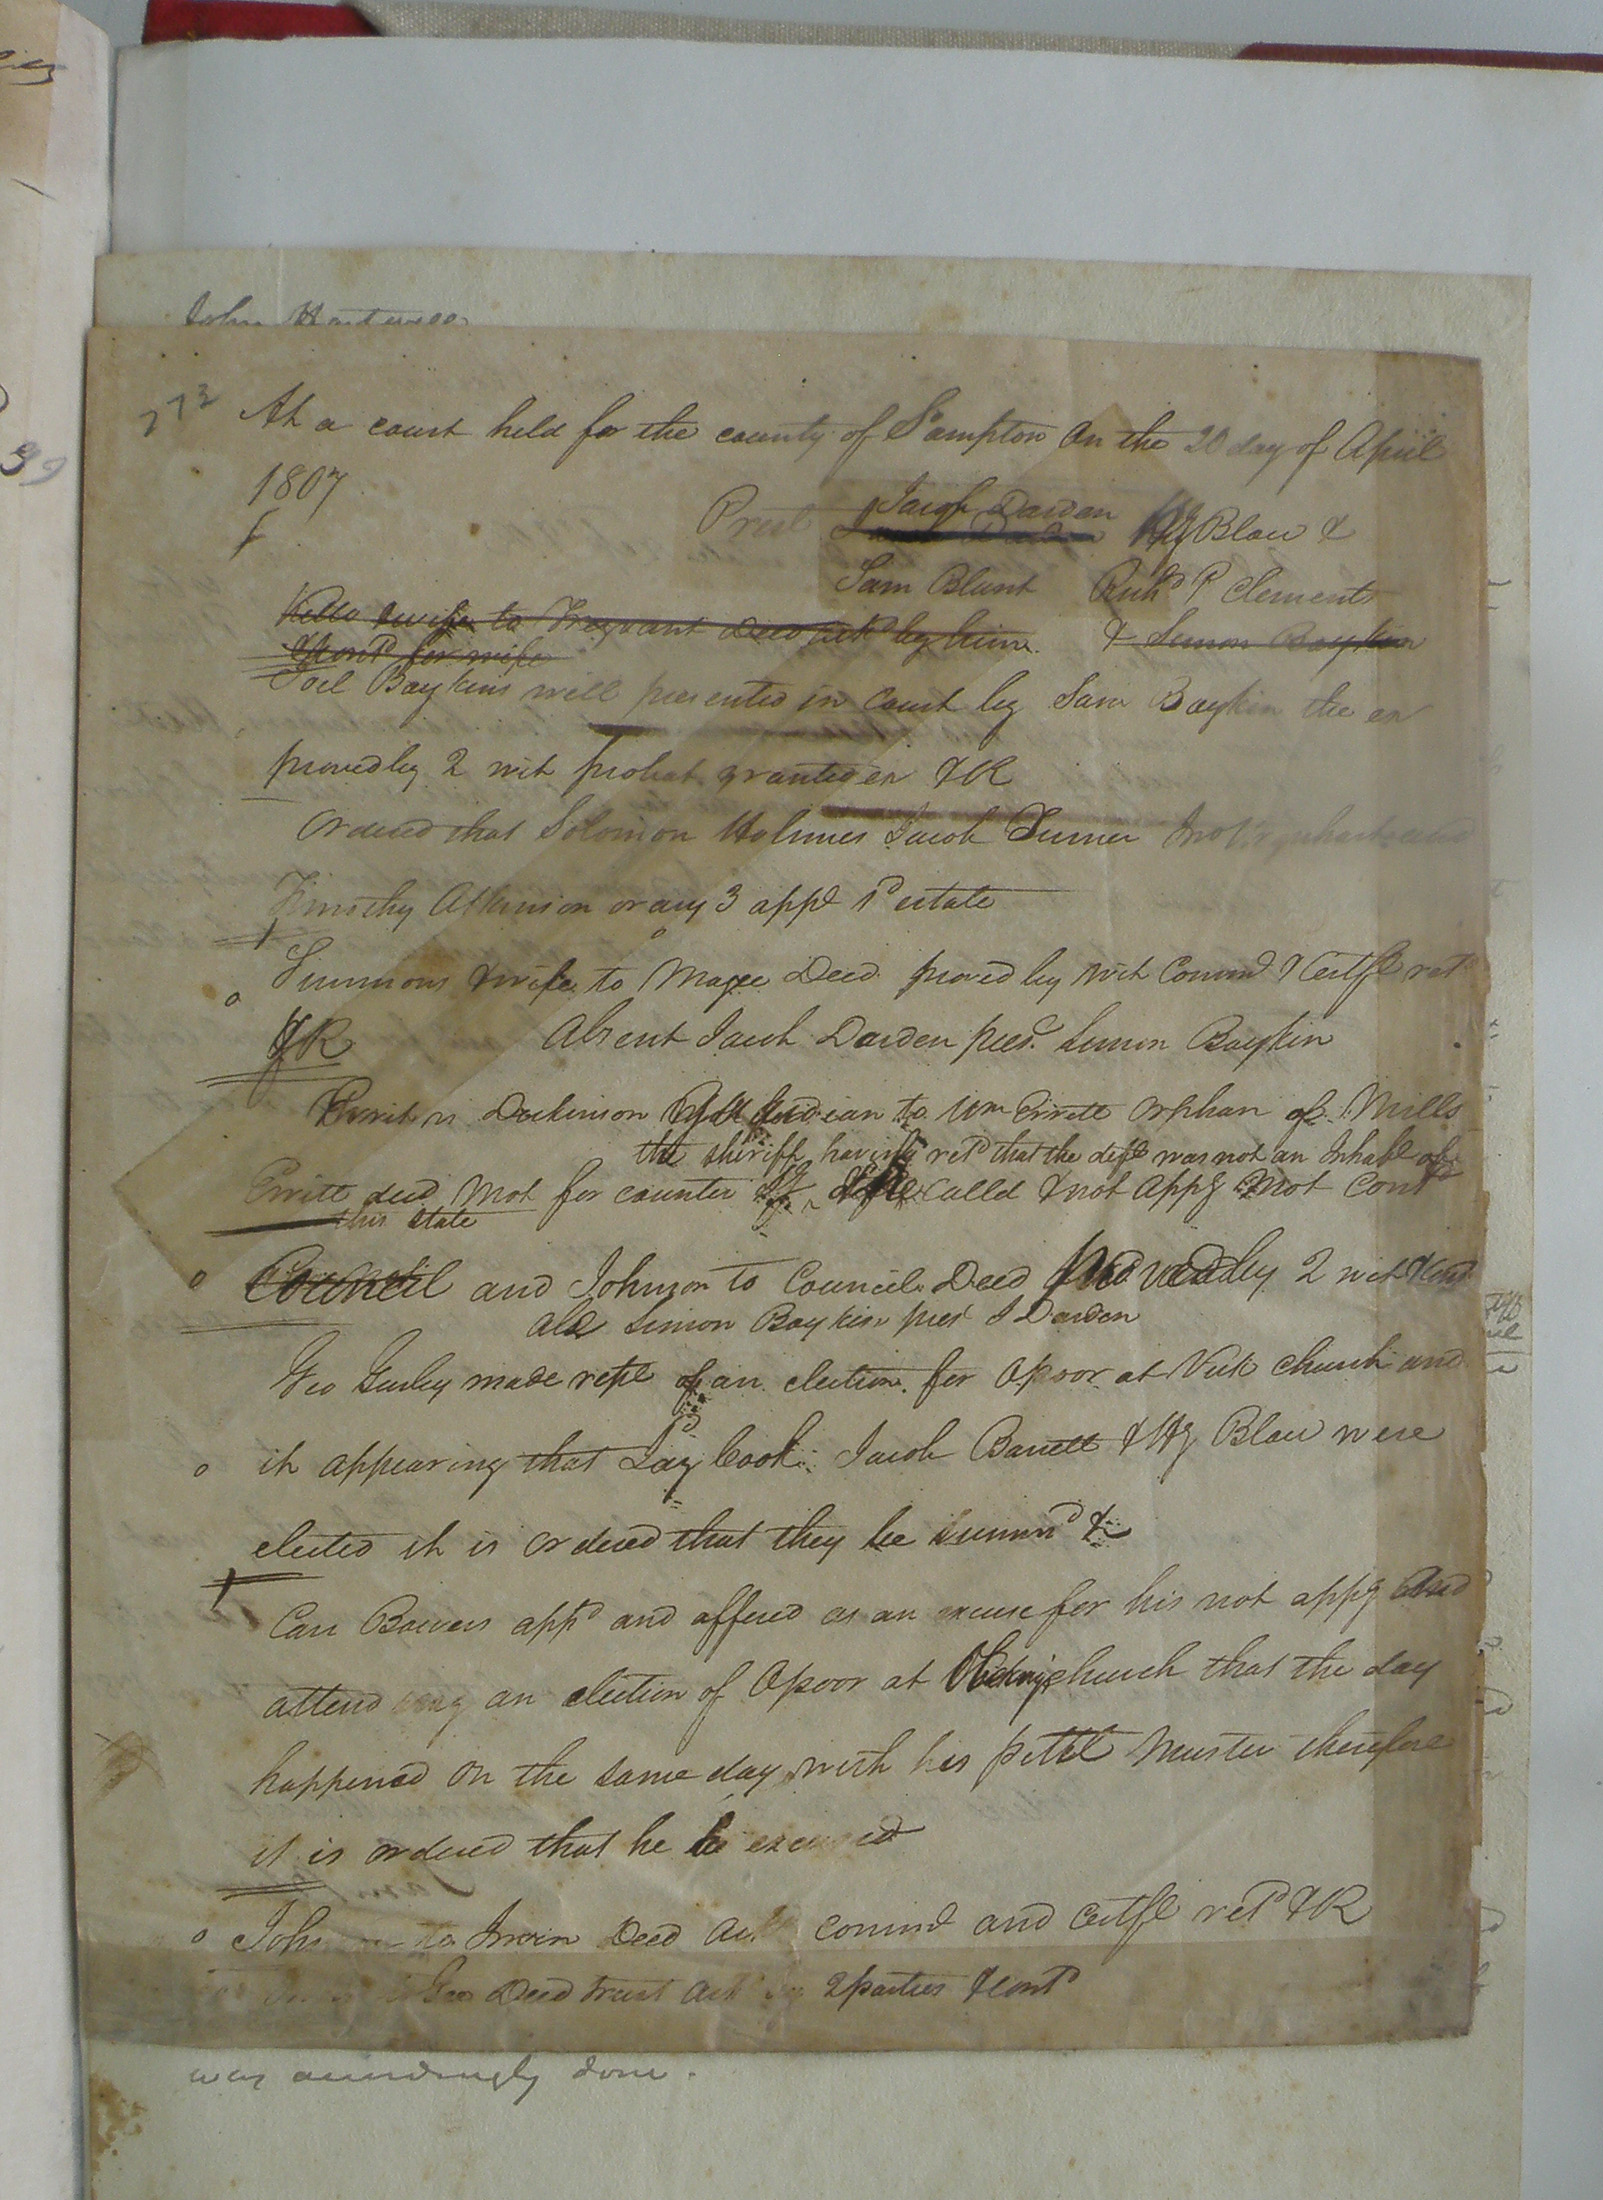 John Hartwell
39
273 At a court held for the county of S'ampton on the 20 day of April
1807
Prest Jacob Darden Hy Blow &
Sam Blunt Richd P Clements
Kello & wife to Trezvant Deed ack by him & Simon Boykin
& Contd for wife
Joel Boykins will presented in Court by Sam Boykin the ex
proved by 2 wit probat granted ex &R
Ordered that Solomon Holmes Jacob Turner
Timothy Atkinson or any 3 app sd estate
Simmons & wife to Magee Deed proved by wit Commd & Certfe retd
&R Absent Jacob Darden pres. Simon Boykin
vs Dickinson Gudian to Wm Evritt Orphan of Mills
the sheriff having retd that the deft was not an Inhabt of
Evritt decd Mot for counter called & not appg Mot contd
this state
Council and Johnson to Council Deed proved by 2 wit & Contd
abs Simon Boykin pres J Darden
Geo Gurley made rept of an election for Opoor at Vick church and
it appearing that Lazy Cook Jacob Barrett & Hy Blow were
elected it is ordered that they be summd &
Carr Bowers appd and offered as an excuse for his not appg and
attending an election of Opoor at church that the day
happened on the same day with his petit Muster therefore
it is ordered that he be excused
to Irvin Deed ack commd and certfe retd &R
Deed trust ack by 2 parties & Contd
was accordingly done.